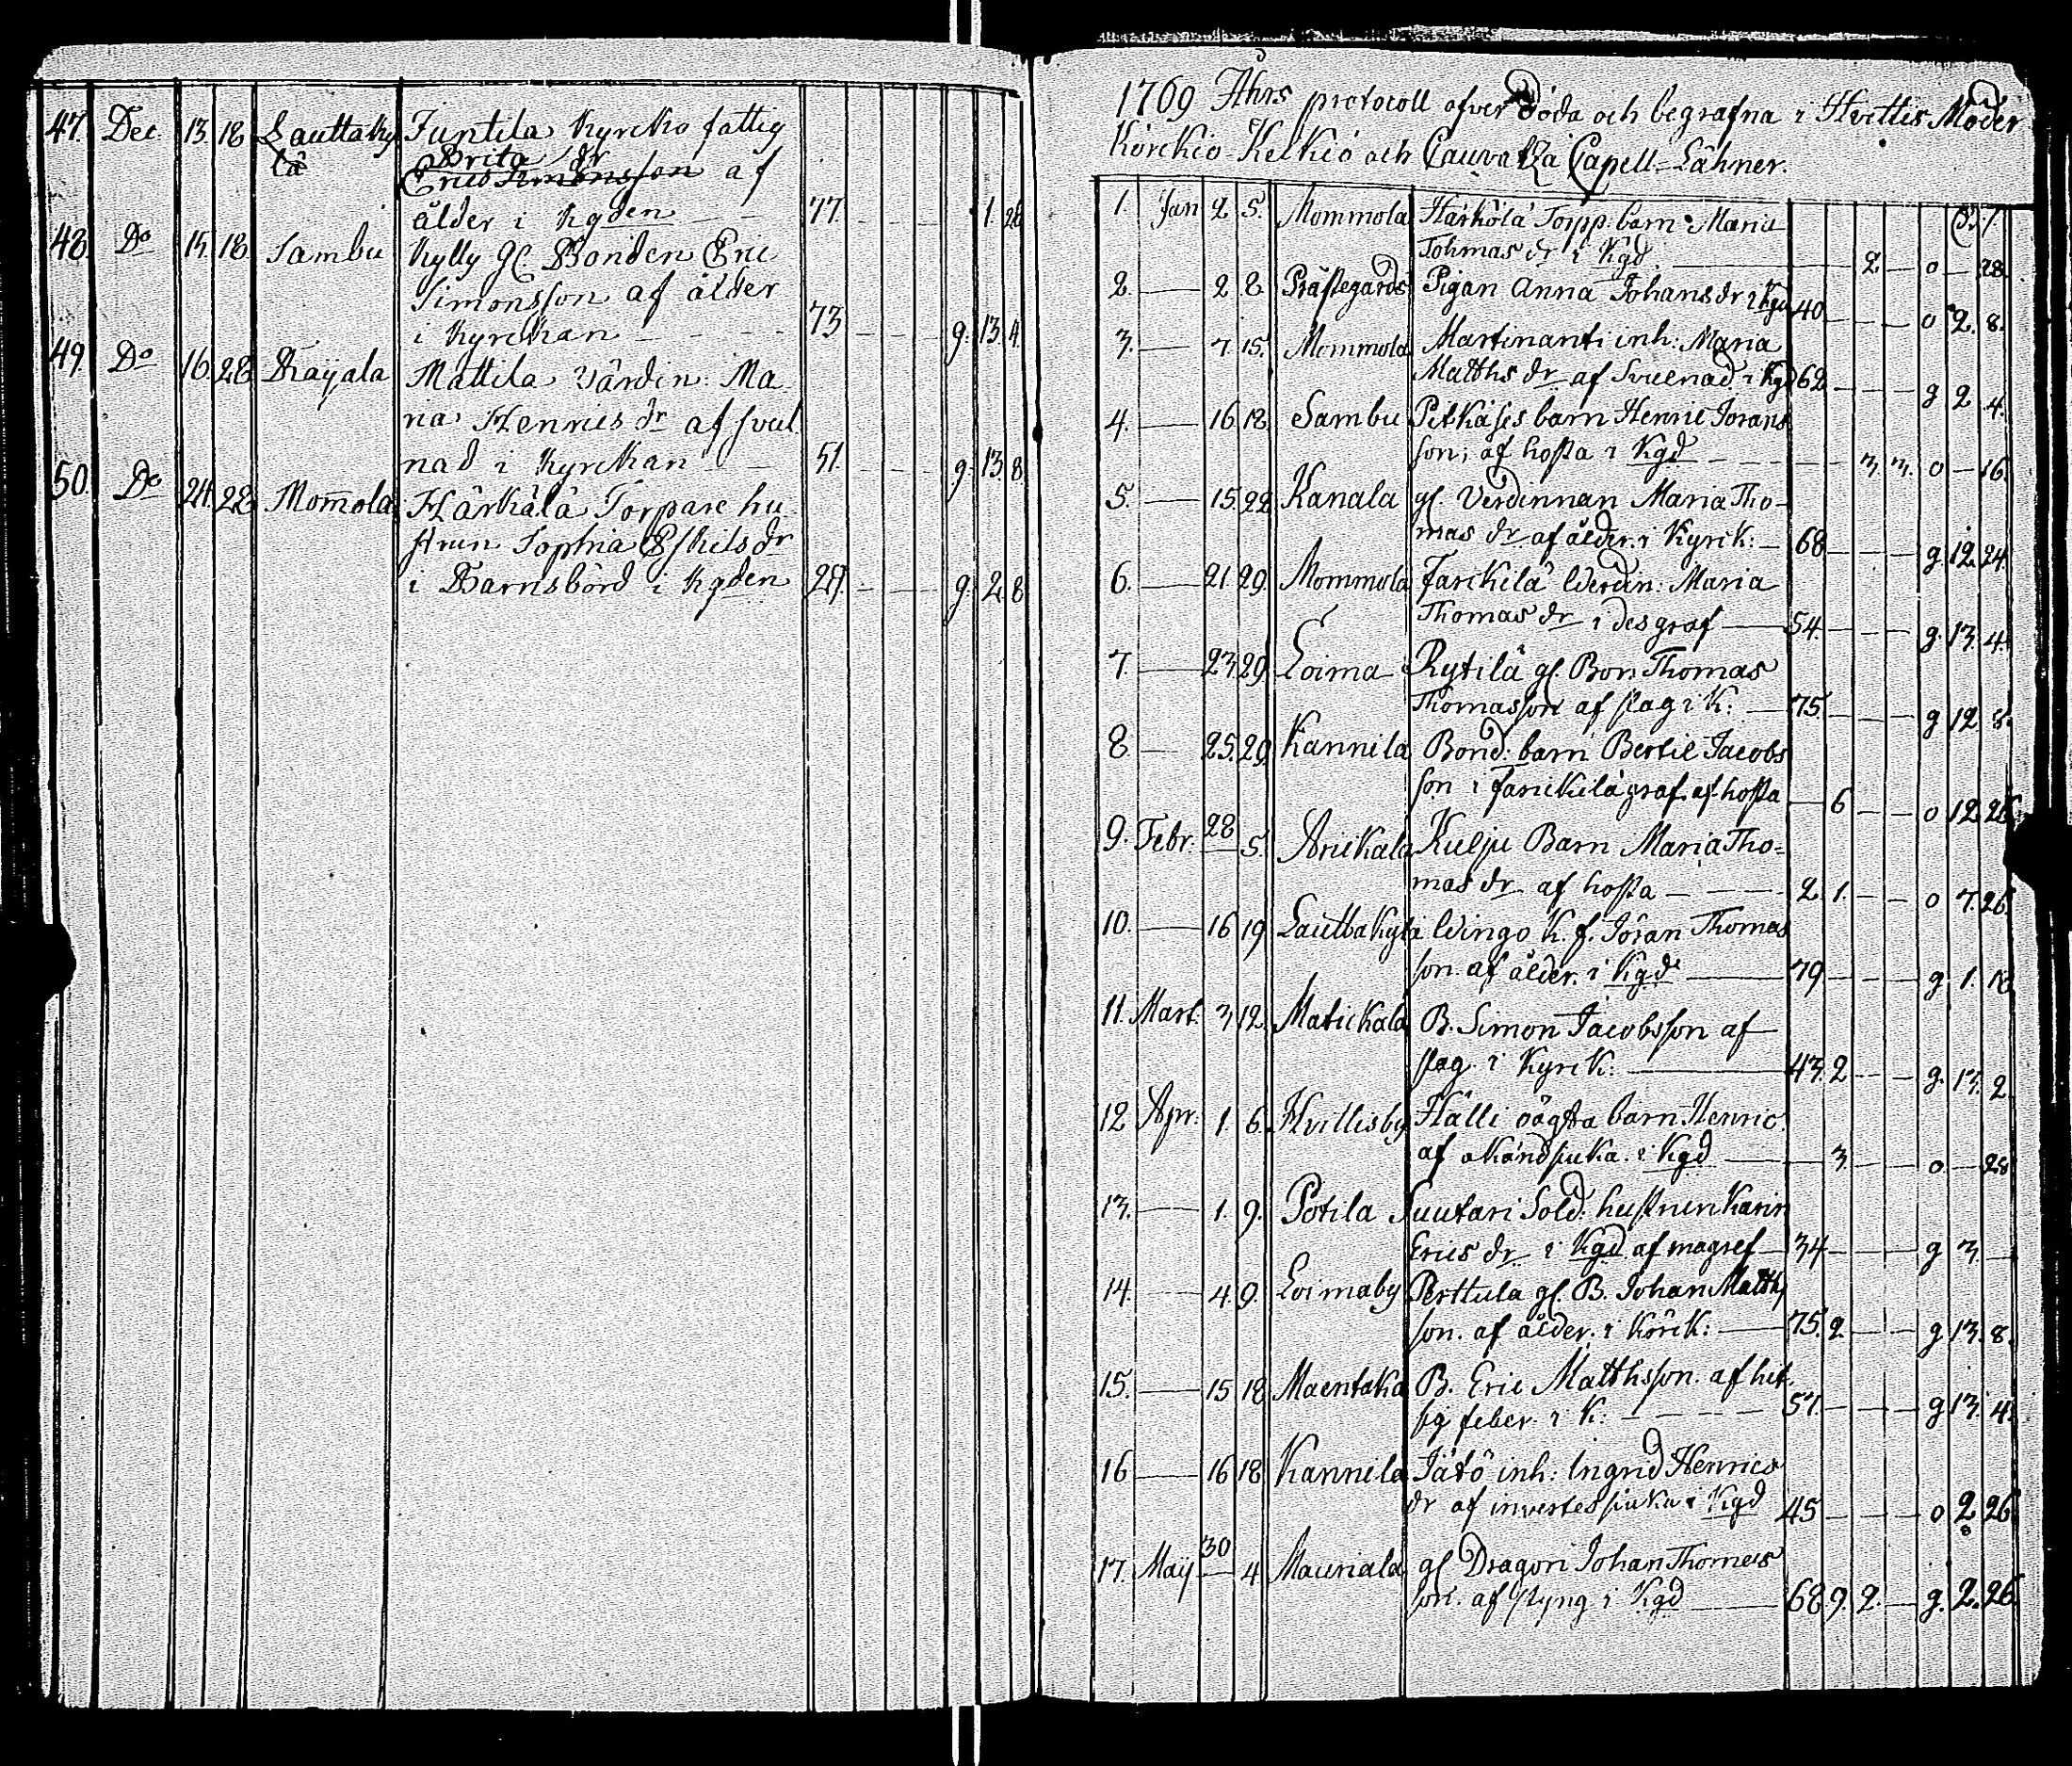 47. Dec. 13. 18 Lauttaky Juntila Kyrcko fattig
lä Brita dr
Erics Simonsson af
ålder i Kgden 77. 1. 28
48. Do 15. 18. Sambu Kylly gl. Bonden Eric
Simonsson af ålder
i Kyrckan 73 g. 13. 4.
49. Do 16. 28 Raijala Mattila Värdin: Ma
ria Henrics dr af svul
nad i Kyrckan 51. g. 13. 8.
50. Do 24. 28 Momola Härkälä Torpare hu
strun Sophia Eskils dr
i Barnsbörd i Kgden 28. g. 2. 8
1769 Åhrs protocoll öfver Döda och begrafna i Hvittis Moder
Körckio Keikiö och Cauvatza Capell-Lähner.
1. Jan 2 5. Mommola Härkölä Torpp. barn Maria
Tohmas dr i Kgd. 2 — o — 28.
2. — 2 8 Prästegårds Pigan Anna Johans dr i Kgd 40 o 2. 8.
3. — 7. 15. Mommola Martinanti inh: Maria
Matths dr af Svulnad i Kgd 62 g 2 4.
4. — 16 18 Sambu Pitkäjes barn Henric Jörans
son, af hosta i Kgd 3. 3. o — 16.
5. — 15. 22 Kanala gl. Verdinnan Maria Tho-
mas dr af ålder i Kyrck: — 68 g. 12. 24.
6. — 21 29. Mommola Jarickilä Werdin: Maria
Thomas dr i des graf — 54 g. 13. 4.
7. — 23. 29. Loima Rytilä gl. Bon. Thomas
Thomasson af slag i K: — 75. g 12 8.
8 — 25. 29. Kannila Bond. barn Bertil Jacobs
son i Jarickilä graf. af hosta — 6 o 12 26
9. Febr. 28 — 5. Arickala Kulju Barn Maria Tho-
mas dr af hosta 2. 1. o 7. 26.
10. — 16 19 Lauttakylä Wingo K. f. Jöran Thomas
son. af ålder. i Kgd 79. g 1. 18
11. Mart. 3 12. Matickala B. Simon Jacobsson af
slag. i Kyrck: 43. 2 g. 13. 2
12 Apr. 1. 6. Hvittisby Hälli oägta barn Henric
af okänd siuka. i Kgd 3. o — 28
13. — 1. 9. Potila Suutari Sold: hustrun Karin
Erics dr i Kgd af magref 34 g 3. —
14. — 4. 9. Loimaby Perttula gl. B. Johan Matths
son. af ålder. i Körck: 75. 2 g 13. 8.
15. — 15 18 Maentaka B. Eric Matthsson. af het
sig feber i K: 57. g 13. 4.
16 — 16 18 Kannila Jätö inh: Ingrid Henrics
dr af invertes siuka i Kgd 45 o 2 26
17. Maij 30 — 4 Mauriala gl Dragon Johan Thomas
son. af styng i Kgd 68 9. 2. g. 2. 26.